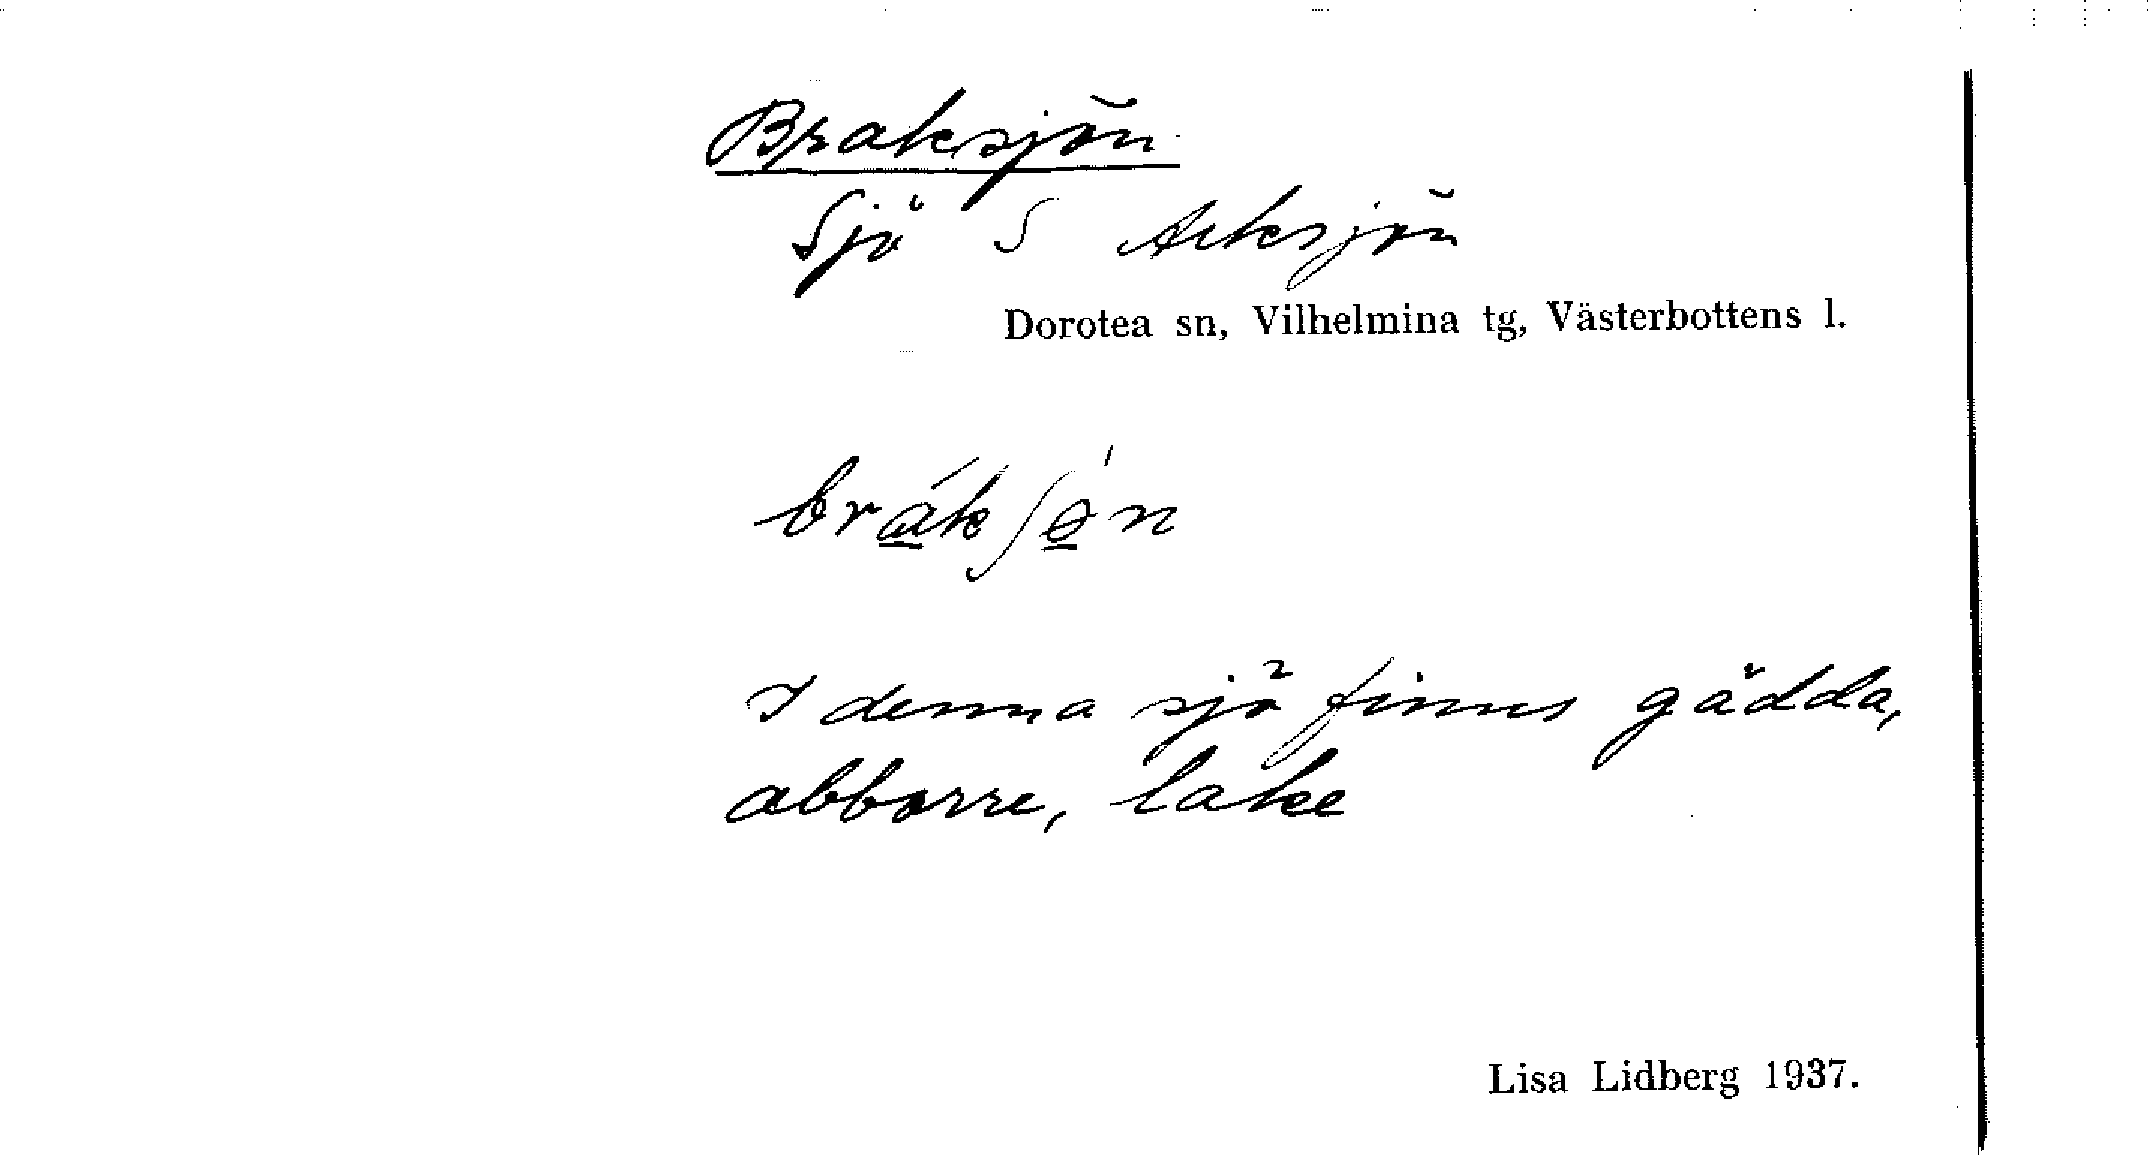 Braksjön
Sjö S Arksjön
Dorotea sn, Vilhelmina tg, Västerbottens l.
brá̲kʃɵ̲́n
I denna sjö finns gädda,
abborre, lake
Lisa Lidberg 1937.